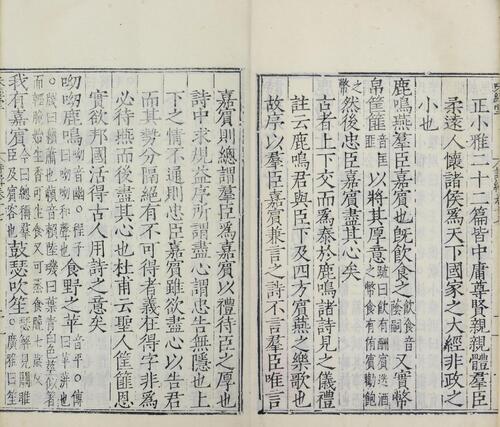 正小雅二十二篇皆中庸尊賢親親體羣臣
柔遠人懷諸侯爲天下國家之大經非政之
小也
鹿鳴燕羣臣嘉賓也旣飲食之又實幣
帛筐篚以將其厚意
然後忠臣嘉賓盡其心矣
古者上下交而爲泰於鹿鳴諸詩見之儀禮
註云鹿鳴君與臣下及四方賓燕之樂歌也
故序以羣臣嘉賓兼言之詩不言羣臣唯言
嘉賓則總謂羣臣爲嘉賓以禮待臣之厚也
詩中求規益序所謂盡心謂忠告無隱也上
下之情不通則忠臣嘉賓雖欲盡心以告君
而其勢分隔絶有不可得者義在得字非爲
必待燕而後盡其心也杜甫云聖人筐篚恩
實欲邦國活得古人用詩之意矣
呦呦鹿鳴食野之苹
我有嘉賓鼓瑟吹笙